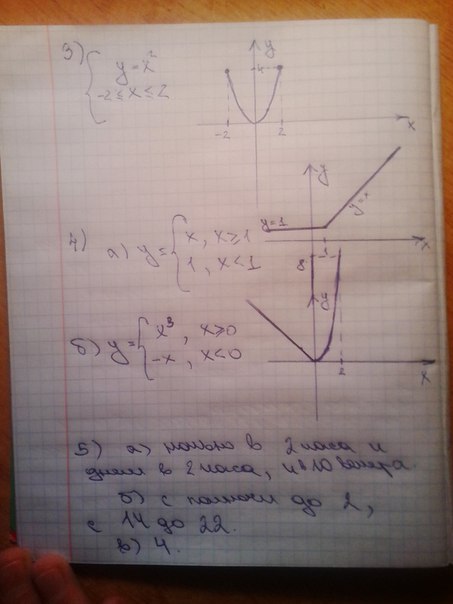 3) { y = x²
-2 ≤ x ≤ 2
y
4
-2 2
x
4) а) y = { x, x ≥ 1
1, x < 1
y
y=1
y=x
1
x
б) y = { x³, x ≥ 0
-x, x < 0
8
y
2
x
5) а) ночью в 2 часа и
днём в 2 часа, и в 10 вечера.
б) с полночи до 2,
с 14 до 22.
в) 4.